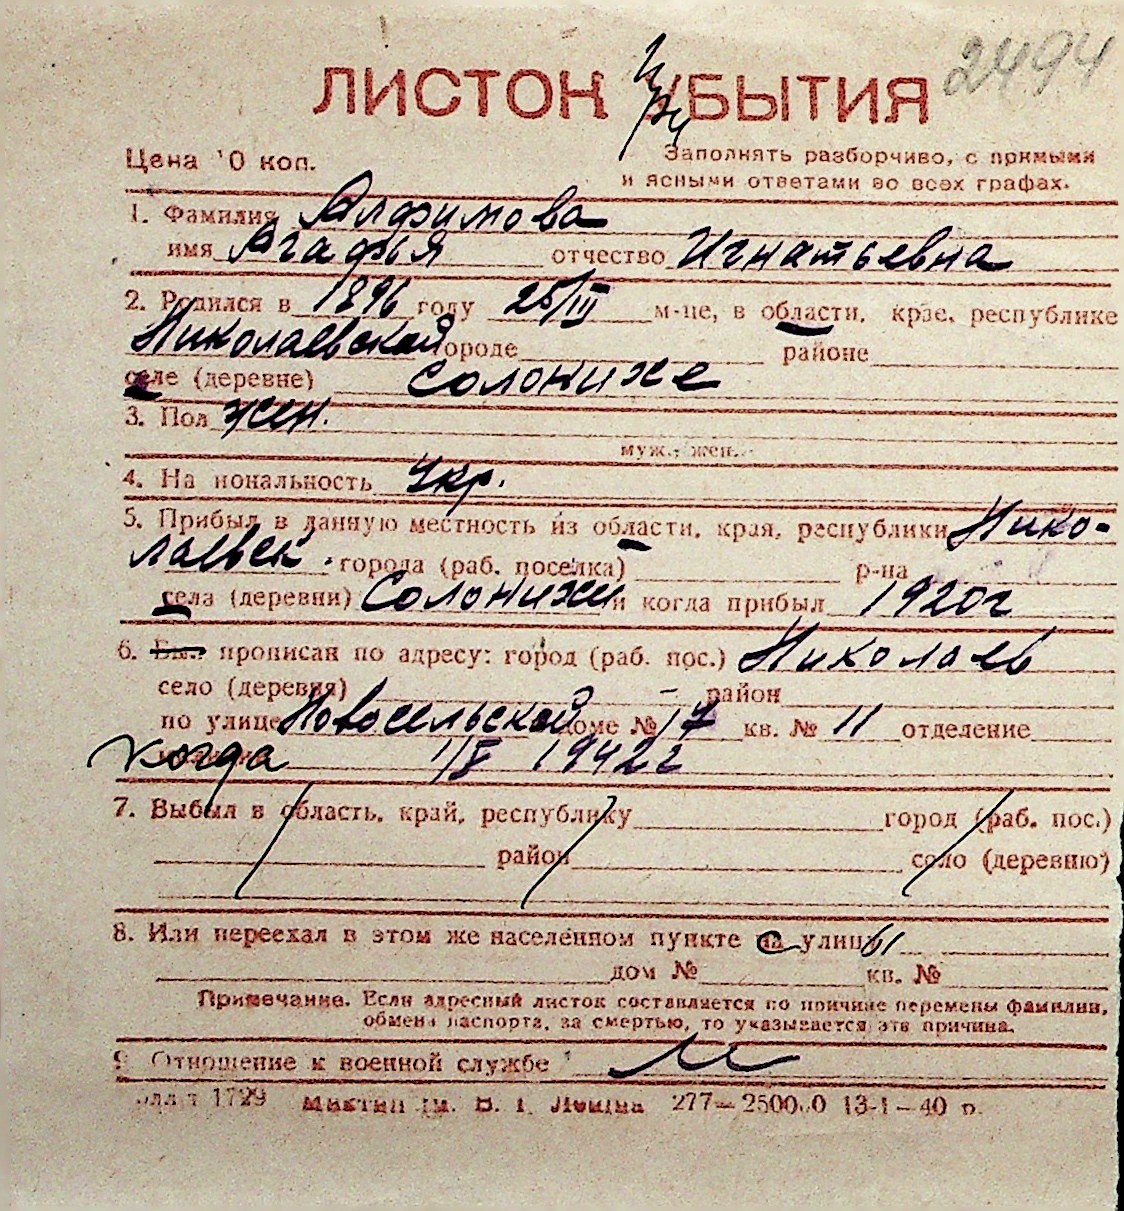 2494
ЛИСТОК УБЫТИЯ
при
Цена 10 коп. Заполнять разборчиво, с прямыми
и ясными ответами во всех графах.
1. Фамилия Алфимова
имя Агафья отчество Игнатьевна
2. Родился в 1896 году 25/III м-це, в области, крае, республике
Николаевской городе районе
селе (деревне) Солониже
3. Пол жен.
муж., жен.
4. Национальность Укр.
5. Прибыл в данную местность из области, края, республики Нико-
лаевск. города (раб. поселка) р-на
села (деревни) Солонижи и когда прибыл 1920г
6. Был прописан по адресу: город (раб. пос.) Николаев
село (деревня) – район
по улице Новосельской доме № 17 кв. № 11 отделение
когда 1/X 1942г
7. Выбыл в область, край, республику город (раб. пос.)
район село (деревню)
8. Или переехал в этом же населённом пункте с улицы
дом № кв. №
Примечание. Если адресный листок составляется по причине перемены фамилии,
обмена паспорта, за смертью, то указывается эта причина.
9. Отношение к военной службе
1729 277—25000.0 13-1-40 р.